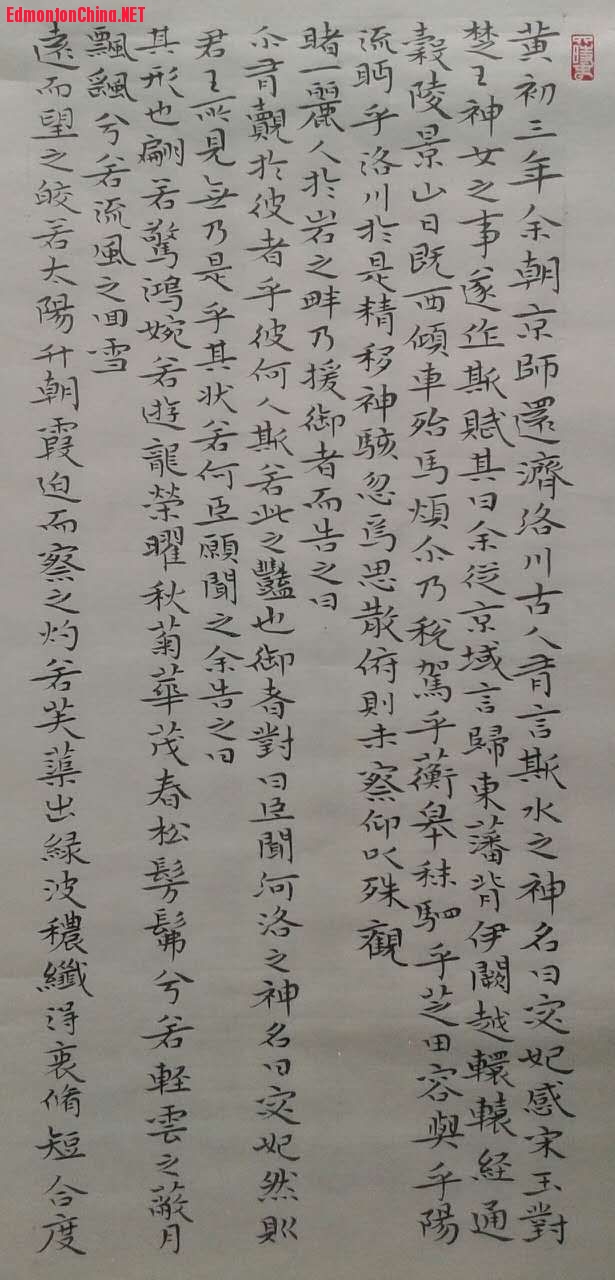 EdmontonChina.NET
黄初三年余朝京師還濟洛川古人有言斯水之神名曰宓妃感宋玉對
楚王神女之事遂作斯賦其曰余従京域言歸東藩背伊闕越轘轅経通
穀陵景山日既西傾車殆馬煩尒乃税駕乎蘅皋秣駟乎芝田容與乎陽
流眄乎洛川於是精移神駭忽焉思散俯則未察仰以殊觀
睹一麗人於岩之畔乃援御者而告之曰
尒有覿於彼者乎彼何人斯若此之豔也御者對曰臣聞河洛之神名曰宓妃然則
君王所見無乃是乎其状若何臣願聞之余告之曰
其形也翩若驚鴻婉若遊龍榮曜秋菊華茂春松髣髴兮若軽雲之蔽月
飄颻兮若流風之回雪
遠而望之皎若太陽升朝霞迫而察之灼若芙蕖出緑波穠纖得衷脩短合度